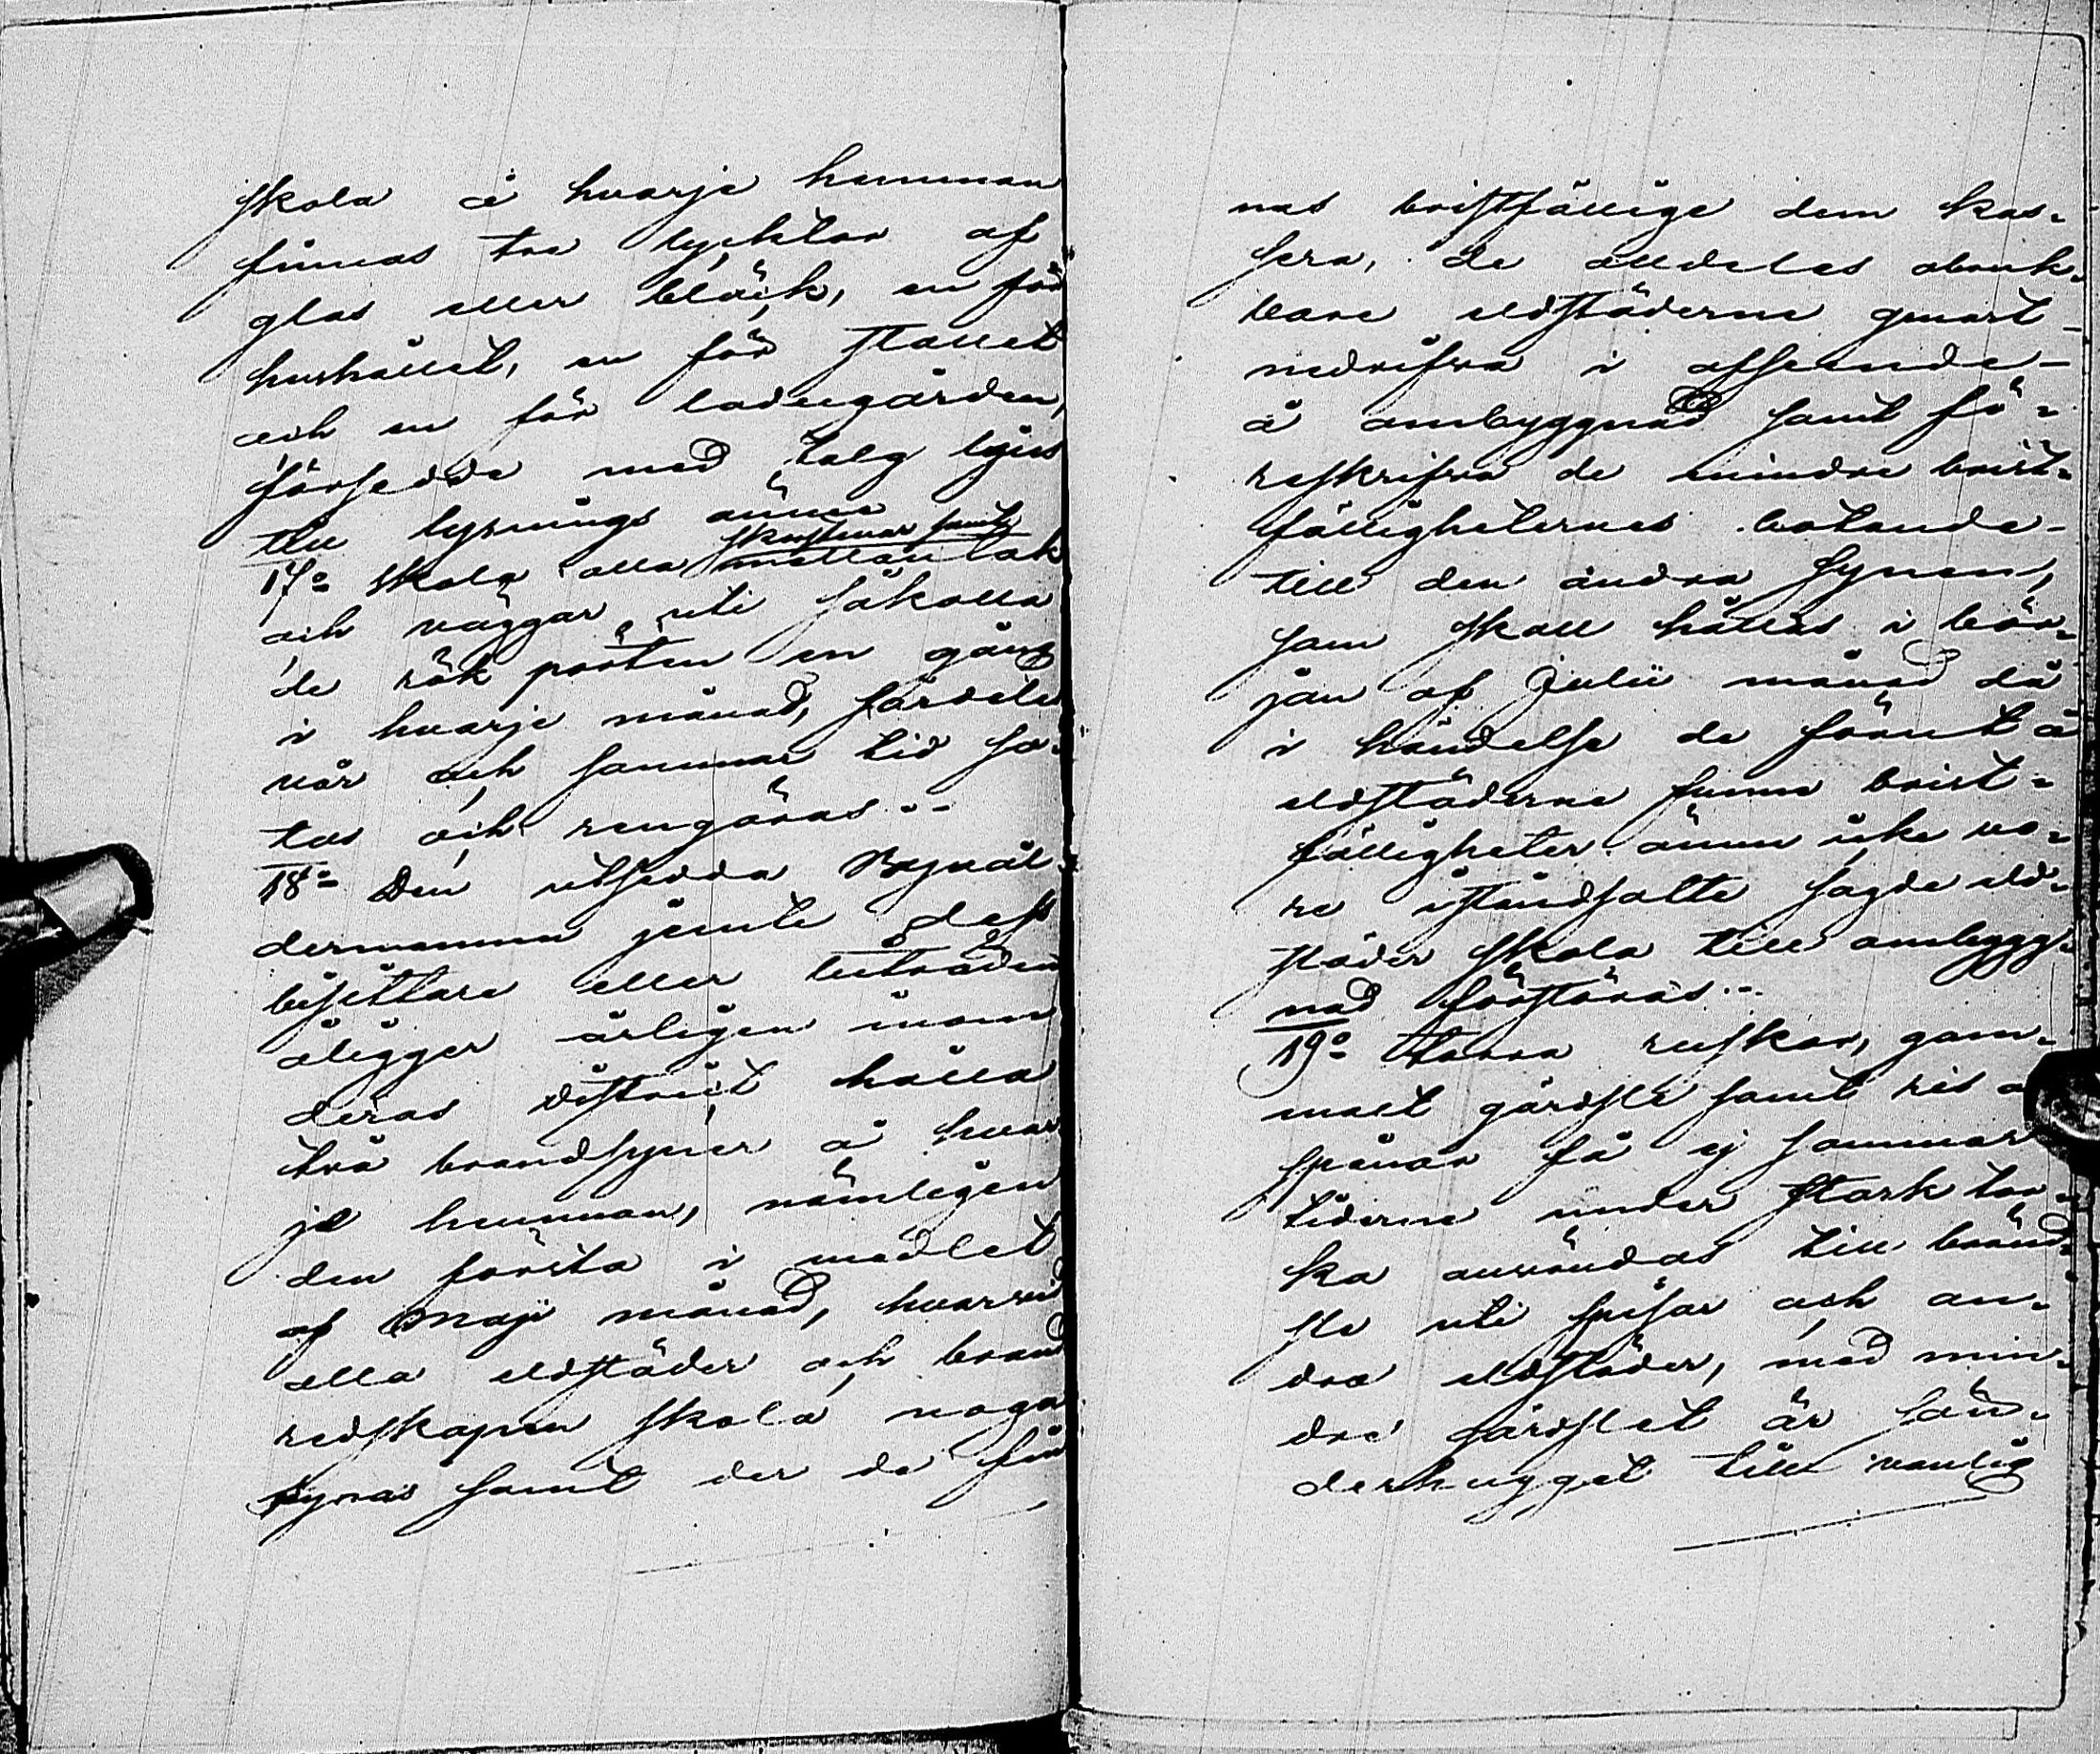 skola å hvarje hemman
finnas tre lycktor af
glas eller bläck, en för
hushållet, en för stallet
och en för ladugården,
försedde med talg ljus
till lysnings ämne
skorstenar samt
17º Skola alla mellan tak
och väggar uti såkalla
de rök pörten en gång
i hvarje månad, särdeles
vår och sommar tid so-
tas och rengöras.--
18º Den utsedda Byål-
dermannen jemte dess
bisittare eller biträden
åligger årligen inom
deras district hålla
två brandsyner å hvar
je hemman, nämligen
den första i medlet
af Maji månad, hvarvid
alla eldstäder och brand
redskapen skola noga
synas samt der de fin
nas bristfällige dem kas-
sera, de alldeles obruk-
bare eldstäderne genast
nedrifva i afseende
å ombyggnad samt fö-
reskrifva de mindre brist-
fälligheternes botande
till den andra synen,
som skall hållas i bör-
jan af Julii månad då
i händelse de förut å
eldstäderne funne brist-
fälligheter ännu icke vo-
re iståndsatte sagde eld-
städer skola till ombygg-
nad förstöras.--
19º Torra ruskor, gam-
malt gärdsle samt ris o
spånor få ej sommar
tiderne under stark tor-
ka användas till bränd-
sle uti spisar och an-
dra eldstäder, med min-
dre gärdslet är sön-
derhugget till vanlig